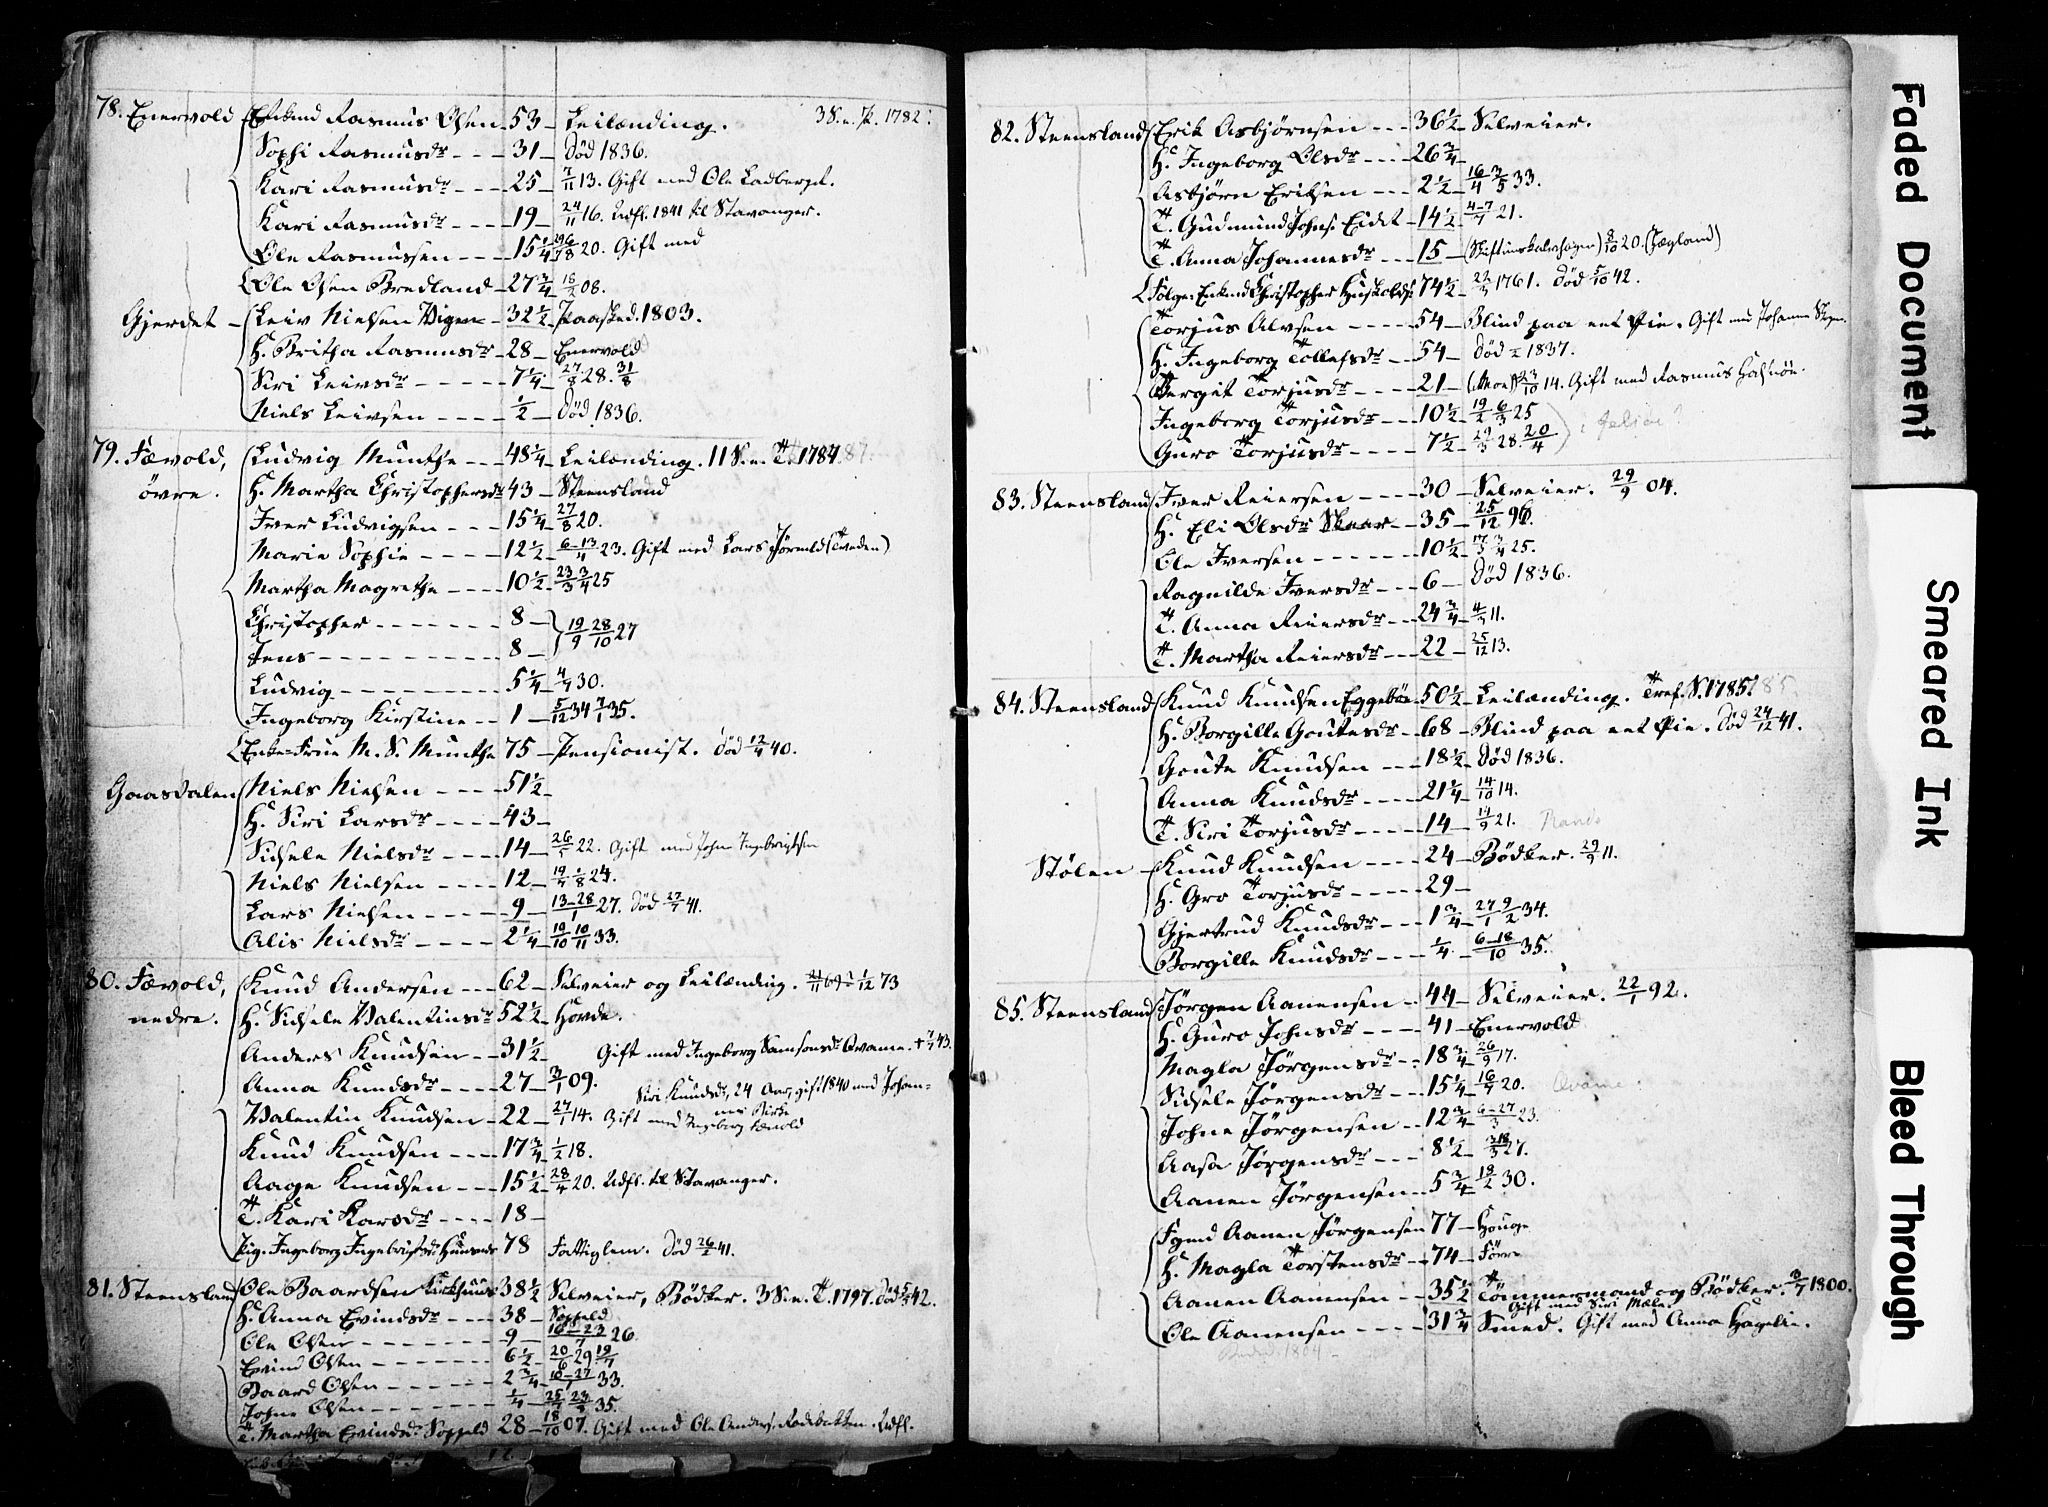 78. Enervold Enkemd Rasmus Olsen 53 Leilænding. 3 S. e. P. 1782.
Sophi Rasmusdr 31 Død 1836.
Kari Rasmusdr 25 7/11 13. Gift med Ole Ladberget.
Kari Rasmusdr 19 24/11 16. Udfl. 1841 til Stavanger.
Ole Rasmussen 15 1/4 20. Gift med
Ole Olsen Bredland 27 3/4 18/2 08.
Gjerdet Leiv Nielsen Vigen 32 1/2 Paasked. 1803.
H. Britha Rasmusdr 28 Enervold
Siri Leivsdr 7 1/4 27/8 28. 31/8
Niels Leivsen 1/2 Død 1836.
79. Fævold, Ludvig Munthe 48 1/4 Leilænding. 11 S. e. T. 1787
øvre. H. Martha Christophersdr 43 Steensland
Iver Ludvigsen 15 1/4 27/8 20.
Marie Sophie 12 1/2 6-13/4 23. Gift med Lars
Martha Magrethe 10 1/2 23/3 3/4 25
Christopher 8 19/9 28/10 27
Jens 8
Ludvig 5 1/4 4/4 30.
Ingeborg Kirstine 1 5/12 34 7/1 35.
Enke-Frue M. S. Munthe 75 Pensionist. død 12/4 40.
Gaasdalen Niels Nielsen 51 1/2
H. Siri Larsdr 43
Sidsele Nielsdr 14 26/5 22. Gift med John Ingebrigtsen
Niels Nielsen 12 24.
Lars Nielsen 9 13-28/1 27. Død 27/7 41.
Alis Nielsdr 2 1/4 19/10 10/11 33.
80. Fævold, Knud Andersen 62 Selveier og Leilænding. 1/12 73
nedre. H. Sidsele Valentinsdr 52 1/2 Hovde.
Anders Knudsen 31 1/2 Gift med Ingeborg Samsonsdr Qvame. + 7/7 43.
Anna Knudsdr 27 3/1 09. Siri Knudsdr, 24 Aar, gift 1840 med Johan-
Valentin Knudsen 22 27/1 14. Gift med Ingeborg Fævold
Knud Knudsen 17 3/4 1/2 18.
Aage Knudsen 15 1/2 28/4 20. Udfl. til Stavanger.
T. Kari Larsdr 18
Pig. Ingeborg Ingebrigtsdr 78 Fattiglem. Død 26/2 41.
81. Steensland Ole Baardsen Kirkhuus 38 1/2 Selveier, Bødker. 3 S. e. T. 1797. Død 42.
H. Anna Evindsdr 38 Soppeld
Ole Olsen 9 16-23/7 26.
Evind Olsen 6 1/2 20/6 29 19/7
Baard Olsen 2 3/4 33.
Johne Olsen 1/4 35.
T. Martha Evindsdr Soppeld 28 18/10 07. Gift med Ole Anders. Udfl.
82. Steensland Erik Asbjørnsen 36 1/2 Selveier.
H. Ingeborg Olsdr 26 3/4
Asbjørn Eriksen 2 1/2 16/4 3/5 33.
T. Gudmund Johns. Eidet 14 1/2 4-7/7 21.
T. Anna Johannesdr 15 8/10 20. (Jægland)
Følge: Enkemd Christopher 74 1/2 1761. Død 5/10 42.
Torjus Alvsen 54 Blind paa eet Øie. Gift med Johanne
H. Ingeborg Tollefsdr 54 Død 1837.
Berget Torjusdr 21 (Moe) 23/10 14. Gift med Rasmus Halsnøe.
Ingeborg Torjusdr 10 1/2 19/2 6/3 25
Guro Torjusdr 7 1/2 29/3 28. 20/4
83. Steensland Iver Reiersen 30 Selveier. 29/9 04.
H. Eli Olsdr Skaar 35 25/12 96.
Ole Iversen 10 1/2 17/3 3/4 25.
Ragnilde Iversdr 6 Død 1836.
T. Anna Reiersdr 24 3/4 11.
T. Martha Reiersdr 22 25/12 13.
84. Steensland Knud Knudsen Eggebøe 50 1/2 Leilænding. Tref. S. 1785
H. Borgille Goutesdr 68 Blind paa eet Øie. Død 24/12 41.
Goute Knudsen 18 1/2 Død 1836.
Anna Knudsdr 21 1/4 14/10 14.
T. Siri Torjusdr 14 14/9 21.
Stølen Knud Knudsen 24 Bødker. 29/9 11.
H. Gro Torjusdr 29
Gjertrud Knudsdr 1 3/4 27/1 9/2 34.
Borgille Knudsdr 1/4 6-18/10 35.
85. Steensland Jørgen Aanensen 44 Selveier. 22/1 92.
H. Guro Johnsdr 41 Enervold
Magla Jørgensdr 18 3/4 26/9 17.
Sidsele Jørgensdr 15 1/4 16/7 20. Qvame
Johne Jørgensen 12 3/4 6-27/3 23.
Aasa Jørgensdr 8 1/2 27.
Aanen Jørgensen 5 3/4 19/2 30.
Fgmd Aanen Jørgensen 77 Houge
H. Magla Torstensdr 74 Førre
Aanen Aanensen 35 1/2 Tømmermand og Bødker. 1800.
Gift med Siri Mæle
Ole Aanensen 31 3/4 Smed. Gift med Anna Hagelie.
Faded Document
Smeared Ink
Bleed Through